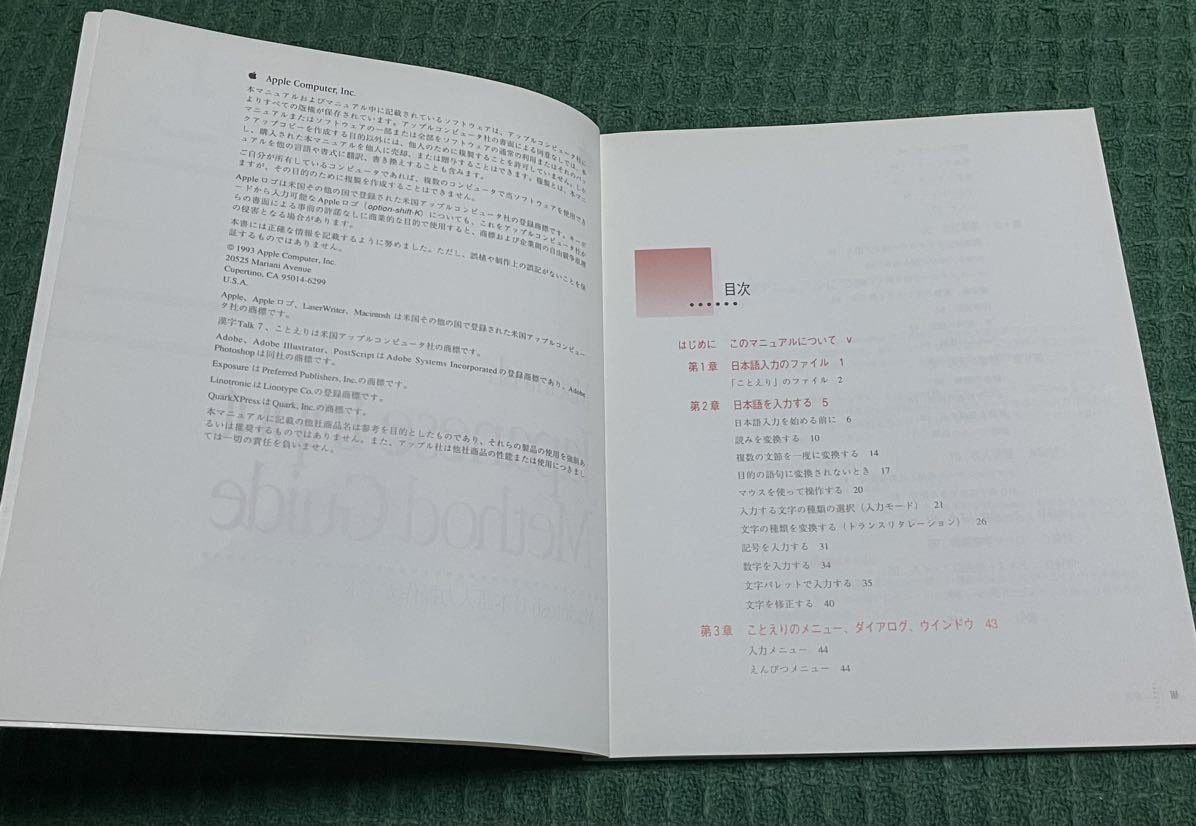 Apple Computer, Inc.
本マニュアルおよびマニュアル中に記載されているソフトウェアは、アップルコンピュータ社に
よりすべての版権が保存されています。アップルコンピュータ社の書面による同意なしでは、本
マニュアルまたはソフトウェアの一部または全部をソフトウェアの通常の利用またはそれのバッ
クアップコピーを作成する目的以外には、他人のために複製することを許可していません。しか
し、購入された本マニュアルを他人に売却、または贈与することはできます。複製とは、本マニ
ュアルを他の言語や書式に翻訳、書き換えすることも含みます。
ご自分が所有しているコンピュータであれば、複数のコンピュータで当ソフトウェアを使用でき
ますが、その目的のために複製を作成することはできません。
Appleロゴは米国その他の国で登録された米国アップルコンピュータ社の登録商標です。キーボ
ードから入力可能なAppleロゴ（option-shift-K）についても、これをアップルコンピュータ社か
らの書面による事前の許諾なしに商業的な目的で使用すると、商標および企業間の自由競争原理
の侵害となる場合があります。
本書には正確な情報を記載するように努めました。ただし、誤植や制作上の誤記がないことを保
証するものではありません。
© 1993 Apple Computer, Inc.
20525 Mariani Avenue
Cupertino, CA 95014-6299
U.S.A.
Apple、Appleロゴ、LaserWriter、Macintosh は米国その他の国で登録された米国アップルコンピュー
タ社の商標です。
漢字Talk 7、ことえりは米国アップルコンピュータ社の商標です。
Adobe、Adobe Illustrator、PostScriptはAdobe Systems Incorporatedの登録商標であり、Adobe
Photoshopは同社の商標です。
ExposureはPreferred Publishers, Inc.の商標です。
LinotronicはLinotype Co.の登録商標です。
QuarkXPressはQuark, Inc.の商標です。
本マニュアルに記載の他社商品名は参考を目的としたものであり、それらの製品の使用を強制あ
るいは推奨するものではありません。また、アップル社は他社商品の性能または使用につきまし
ては一切の責任を負いません。
目次
はじめに このマニュアルについて v
第1章 日本語入力のファイル 1
「ことえり」のファイル 2
第2章 日本語を入力する 5
日本語入力を始める前に 6
読みを変換する 10
複数の文節を一度に変換する 14
目的の語句に変換されないとき 17
マウスを使って操作する 20
入力する文字の種類の選択（入力モード） 21
文字の種類を変換する（トランスリタレーション） 26
記号を入力する 31
数字を入力する 34
文字パレットで入力する 35
文字を修正する 40
第3章 ことえりのメニュー、ダイアログ、ウインドウ 43
入力メニュー 44
えんぴつメニュー 44
iii